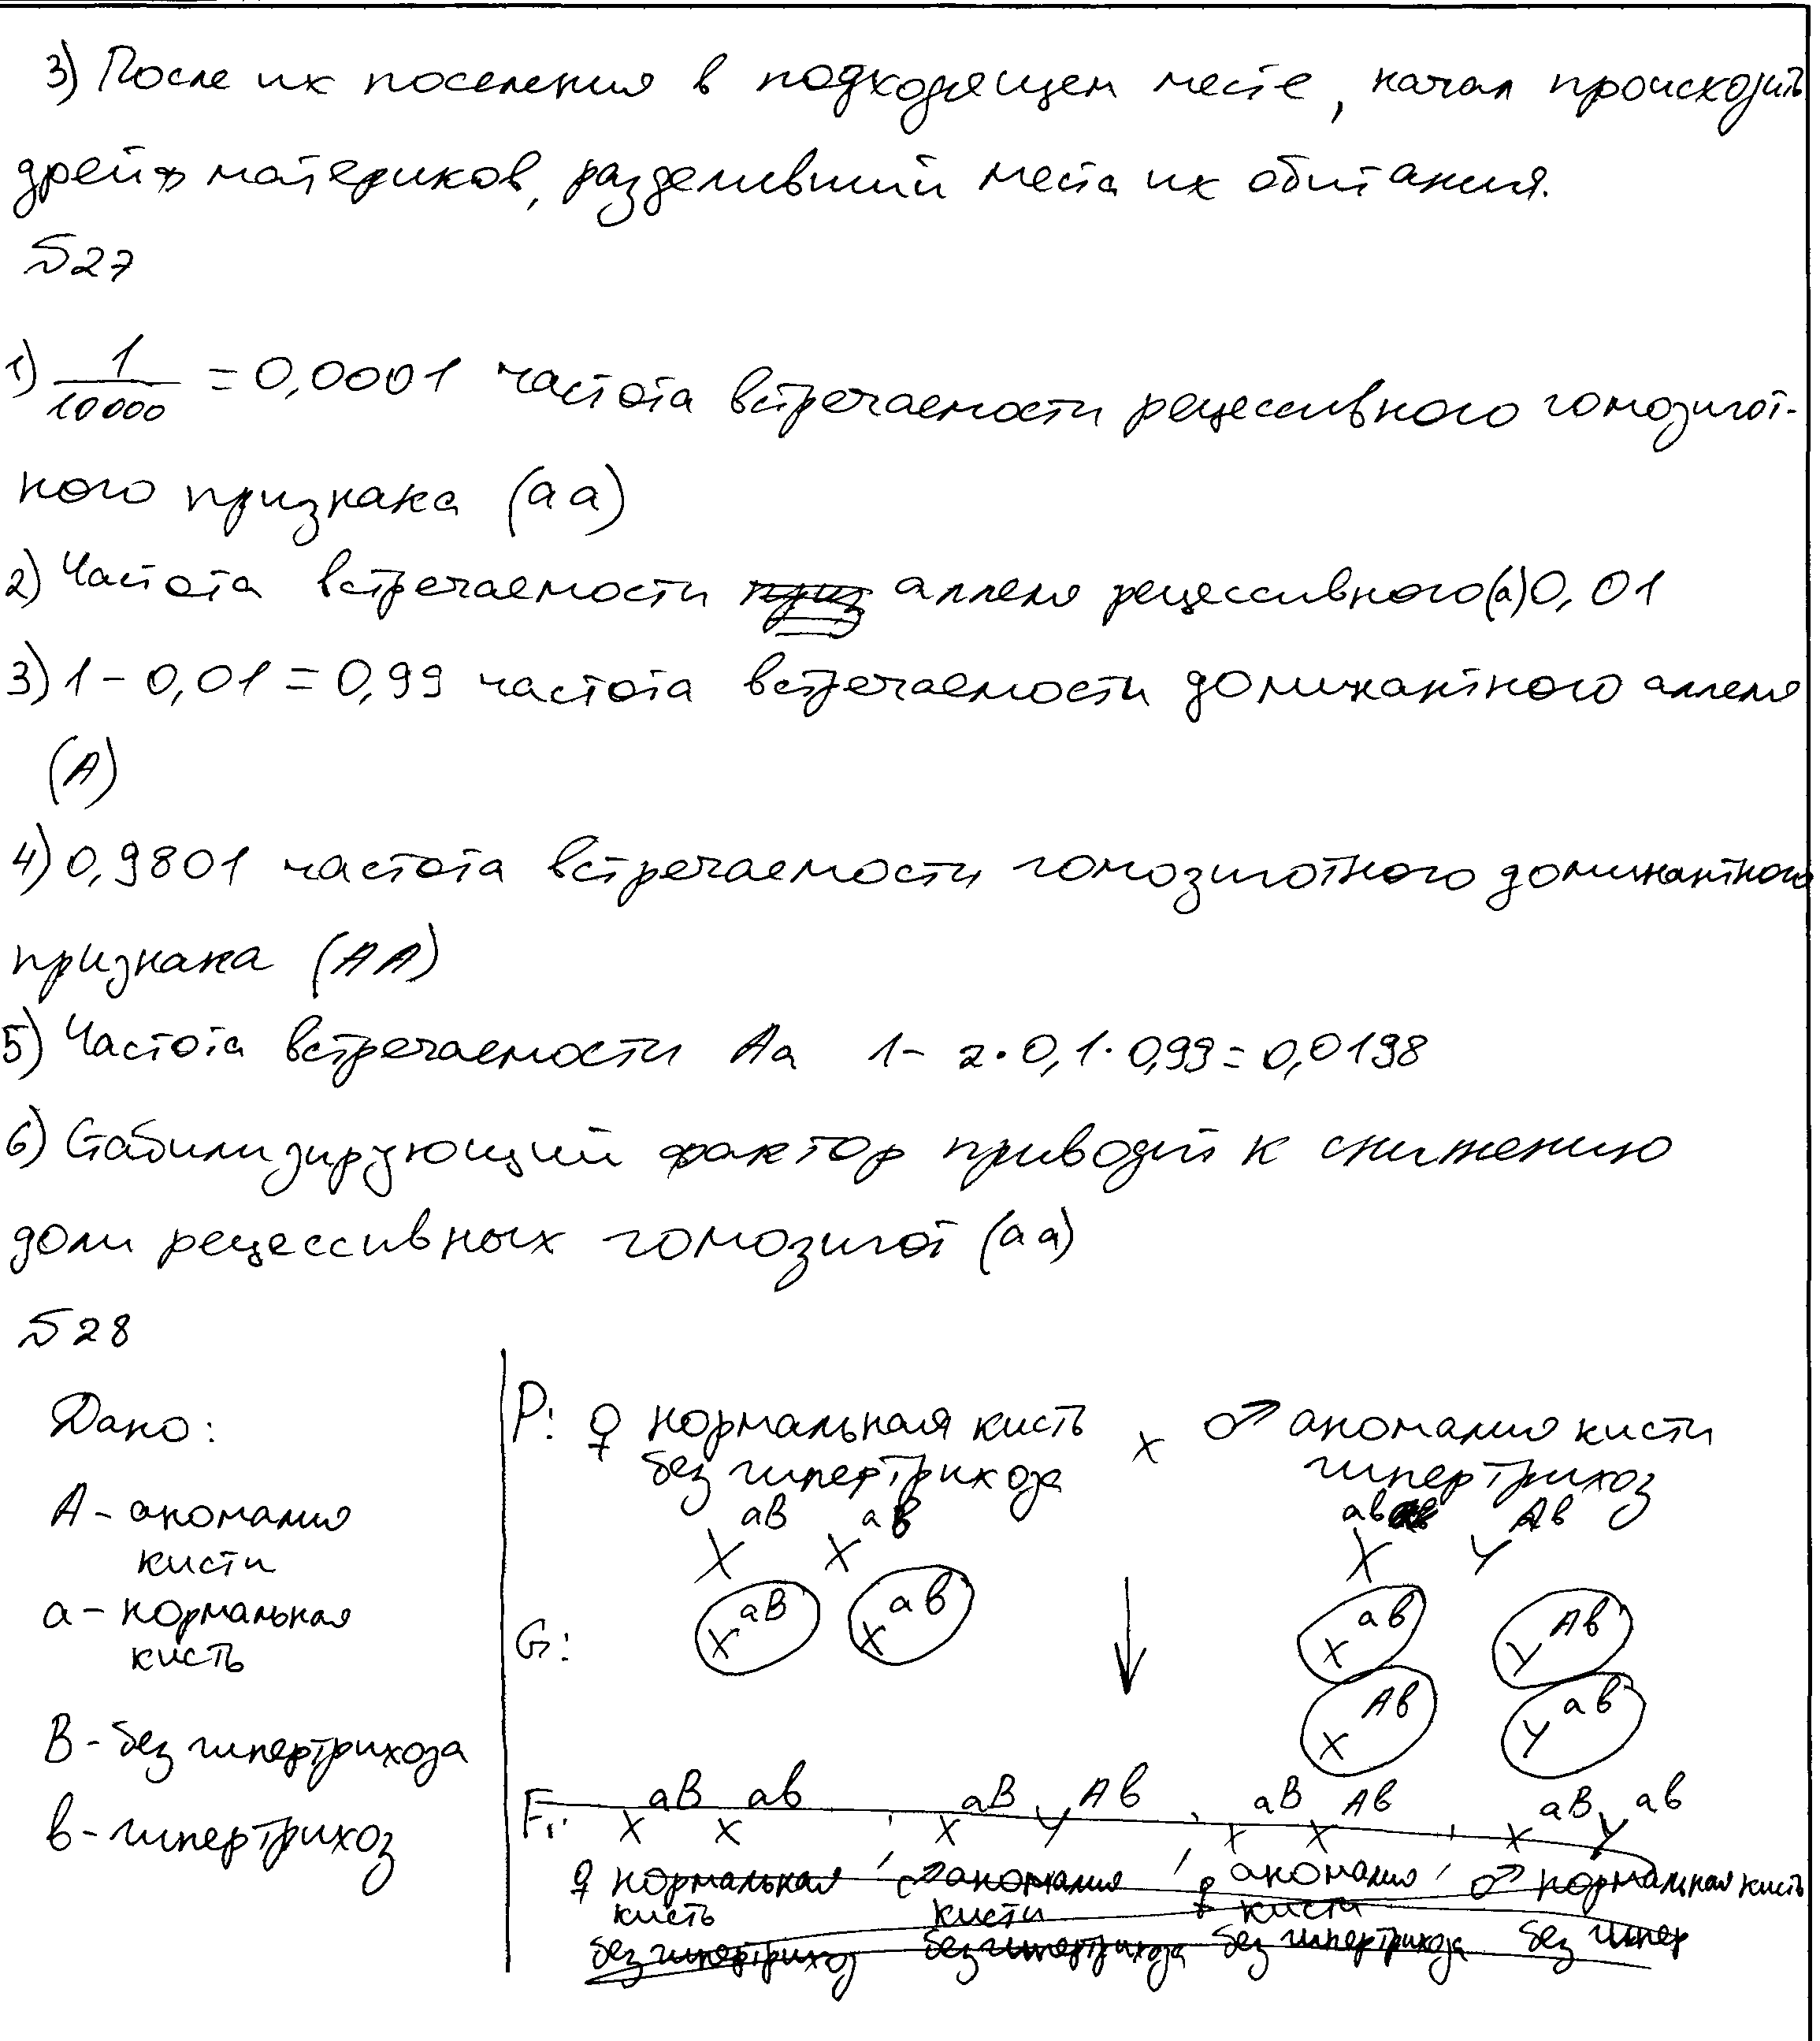 3) После их поселения в подходящем месте, начал происходить
дрейф материков, разделивший места их обитания.
№27
1) 1/10000 = 0,0001 частота встречаемости рецессивного гомозигот-
ного признака (аа)
2) Частота встречаемости приз аллеля рецессивного(а) 0,01
3) 1 - 0,01 = 0,99 частота встречаемости доминантного аллеля
(А)
4) 0,9801 частота встречаемости гомозиготного доминантного
признака (АА)
5) Частота встречаемости Аа 1- 2·0,1·0,99=0,0198
6) Стабилизирующий фактор приводит к снижению
доли рецессивных гомозигот (аа)
№28
Дано:
А - аномалия
кисти
а - нормальная
кисть
В - без гипертрихоза
в - гипертрихоз
P: ♀ нормальная кисть x ♂ аномалия кисти
без гипертрихоза гипертрихоз
X^aB X^ав X^ав Y^Ав
G: X^aB X^ав X^ав Y^Ав
X^Ав Y^ав
F₁: X^aB X^ав, X^aB Y^Ав, X^aB X^Ав, X^aB Y^ав
♀ нормальная , ♂ аномалия , ♀ аномалия , ♂ нормальная кисть
кисть кисти кисти
без гипертрихоз без гипертрихоза без гипертрихоза без гипер